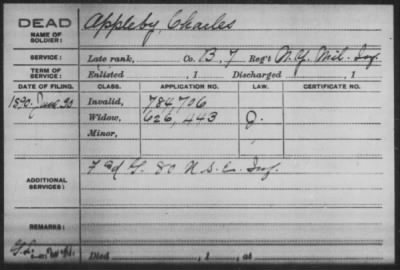 DEAD
NAME OF SOLDIER: Appleby, Charles
SERVICE: Late rank, Co. B, 7 Reg't N.Y. Mil. Inf.
TERM OF SERVICE: Enlisted , 1 Discharged , 1
DATE OF FILING. CLASS. APPLICATION NO. LAW. CERTIFICATE NO.
1890. June 30 Invalid, 784706
Widow, 626,443 J.
Minor,
ADDITIONAL SERVICES: F 80
REMARKS:
Died , 1 , at